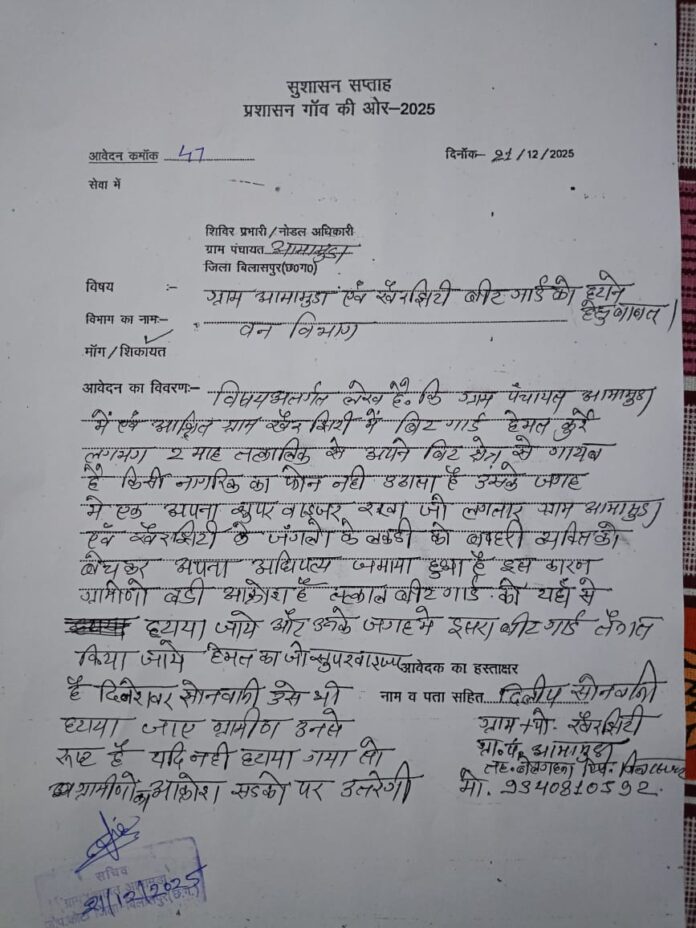 सुशासन सप्ताह
प्रशासन गॉव की ओर–2025
आवेदन कमॉक 47
दिनॉक– 21/12/2025
सेवा में
शिविर प्रभारी/नोडल अधिकारी
ग्राम पंचायत आमामुडा
जिला बिलासपुर(छ0ग0)
विषय :- ग्राम आमामुडा एवं खैरझिटी बीट गार्ड को हटाने हेतु बाबत।
विभाग का नामः- वन विभाग
मॉग/शिकायत
आवेदन का विवरणः- विषय अंतर्गत लेख है. कि ग्राम पंचायत आमामुडा
में एवं आश्रित ग्राम खैरझिटी में बिट गार्ड हेमत कुर्रे
लगभग 2 माह से अपने बिट क्षेत्र से गायब
है किसी नागरिक का फोन नही उठाता है उसके जगह
मे एक अपना सुपरवाइजर रखा जो लगातार ग्राम आमामुडा
एवं खैरझिटी के जंगलो के लकडी को बाहरी व्यक्ति को
बेचकर अपना अधिपत्य जमाया हुआ है इस कारण
ग्रामीणो बडी आक्रोश है तत्काल बीट गार्ड को यहाँ से
हटाया जाये और उनके जगह मे दुसरा बीट गार्ड तैनात
किया जाये हेमत का जो सुपरवाइजर
आवेदक का हस्ताक्षर
है दिनेश्वर सोनवानी उसे भी
नाम व पता सहित दिलीप सोनवानी
हटाया जाए ग्रामीण उनसे
ग्राम+पो. खैरझिटी
रूष्ट है यदि नही हटाया गया तो
ग्रा.पं. आमामुडा
तह. बेलगहना जि. बिलासपुर
ग्रामीणों का आक्रोश सडको पर उतरेगी
मो. 9340810592.
सचिव
21/12/2025